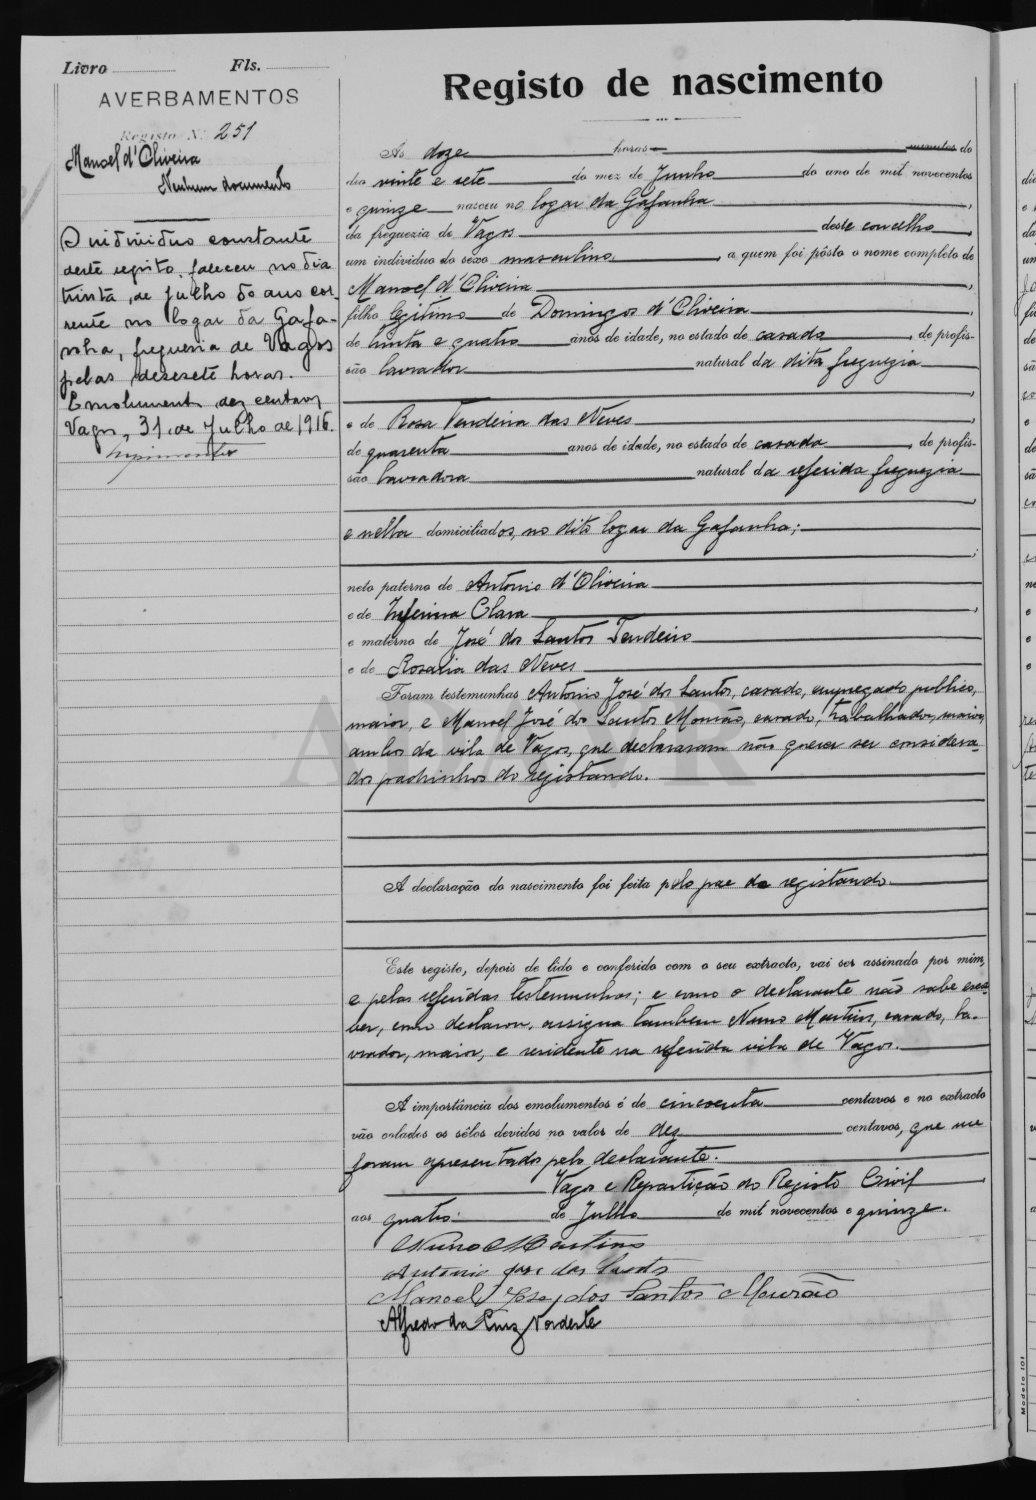 Livro Fls.
AVERBAMENTOS
Registo N.º 251
Manoel d'Oliveira
Nenhum documento
O individuo constante
deste registo, faleceu no dia
trinta de julho do ano cor-
rente no logar da Gafa-
nha, freguesia de Vagos
pelas desesete horas.
Emolumento dez centavos
Vagos, 31 de Julho de 1916.
Registo de nascimento
Ás doze horas minutos do
dia vinte e sete do mez de Junho do ano de mil novecentos
e quinze nasceu no logar da Gafanha,
da freguezia de Vagos deste concelho,
um individuo do sexo masculino, a quem foi pôsto o nome completo de
Manoel d'Oliveira
filho legitimo de Domingos d'Oliveira
de trinta e quatro anos de idade, no estado de casado, de profis-
são lavrador natural da dita freguezia
e de Rosa Tendeira das Neves,
de quarenta anos de idade, no estado de casada, de profis-
são lavradora natural da referida freguezia
e nella domiciliados, no dito logar da Gafanha;
neto paterno de Antonio d'Oliveira
e de Clara,
e materno de José dos Santos Tendeiro
e de Rosaria das Neves
Foram testemunhas Antonio José dos Santos, casado, empregado publico,
maior, e Manoel José dos Santos Mourão, casado, trabalhador, maior,
ambos da vila de Vagos, que declararam não querer ser considera-
dos padrinhos do registando.
A declaração do nascimento foi feita pelo pae do registando.
Este registo, depois de lido e conferido com o seu extracto, vai ser assinado por mim,
e pelas referidas testemunhas; e como o declarante não sabe escre-
ver, como declarou, assigna tambem Nuno Martins, casado, la-
vrador, maior, e residente na referida vila de Vagos.
A importância dos emolumentos é de cincoenta centavos e no extracto
vão colados os sêlos devidos no valor de dez centavos, que me
foram apresentados pelo declarante.
Vagos e Repartição do Registo Civil,
aos quatro de Julho de mil novecentos e quinze.
Nuno Martins
Antonio José dos Santos
Manoel José dos Santos Mourão
Alfredo da Cruz Nordeste
Modelo 101